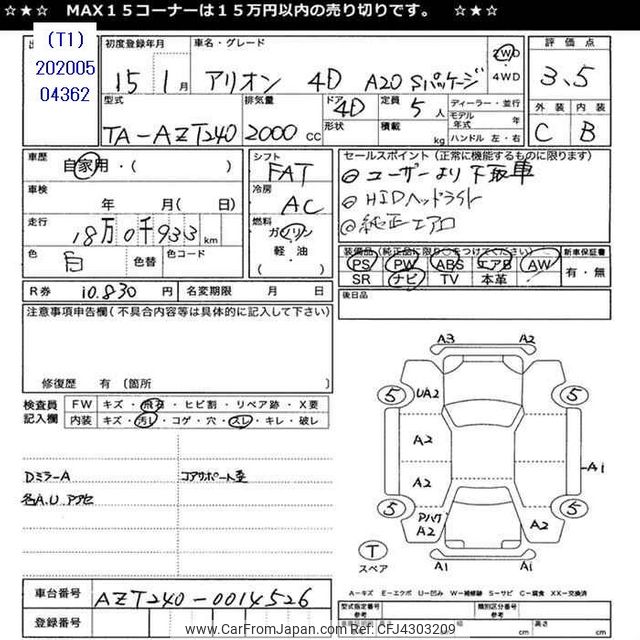 ☆★☆　MAX１５コーナーは１５万円以内の売り切りです。　☆★☆
(T1)
202005
04362
初度登録年月
15年 1月
車名・グレード
アリオン 4D A20 Sパッケージ
2WD
4WD
評価点
3.5
外装 内装
C B
型式
TA-AZT240
排気量
2000 CC
ドア 4D
形状
定員 5人
積載 kg
ディーラー・並行
モデル年式 年
ハンドル 左・右
車歴
自家用・( )
車検
年 月( 日)
走行
18万0千933 km
色 白 色替 色コード
シフト
FAT
冷房
AC
燃料
ガソリン
軽・油
( )
セールスポイント（正常に機能するものに限ります）
◎ユーザーより下取車
◎HIDヘッドライト
◎純正エアロ
装備品（純正品に限り○をつけてください） 新車保証書
PS PW ABS エアB AW 有・無
SR ナビ TV 本革
後日品
R券 10.830円 名変期限 月 日
注意事項申告欄（不具合内容等は具体的に記入して下さい）
修復歴 有 〔箇所
検査員記入欄
FW キズ・飛石・ヒビ割・リペア跡・X要
内装 キズ・汚レ・コゲ・穴・スレ・キレ・破レ
DミラーA コアサポート歪
各A.U アクセ
A3 A2
5 UA2 5
A2
A2 A1
5 A2 A2 5
T
スペア
A1 A1
A-キズ E-エクボ U-凹み W-補修跡 S-サビ C-腐食 XX-交換済
車台番号 AZT240-0014526
登録番号
型式指定番号 類別区分番号
長さ cm 幅 cm 高さ cm
www.CarFromJapan.com Ref CFJ4303209